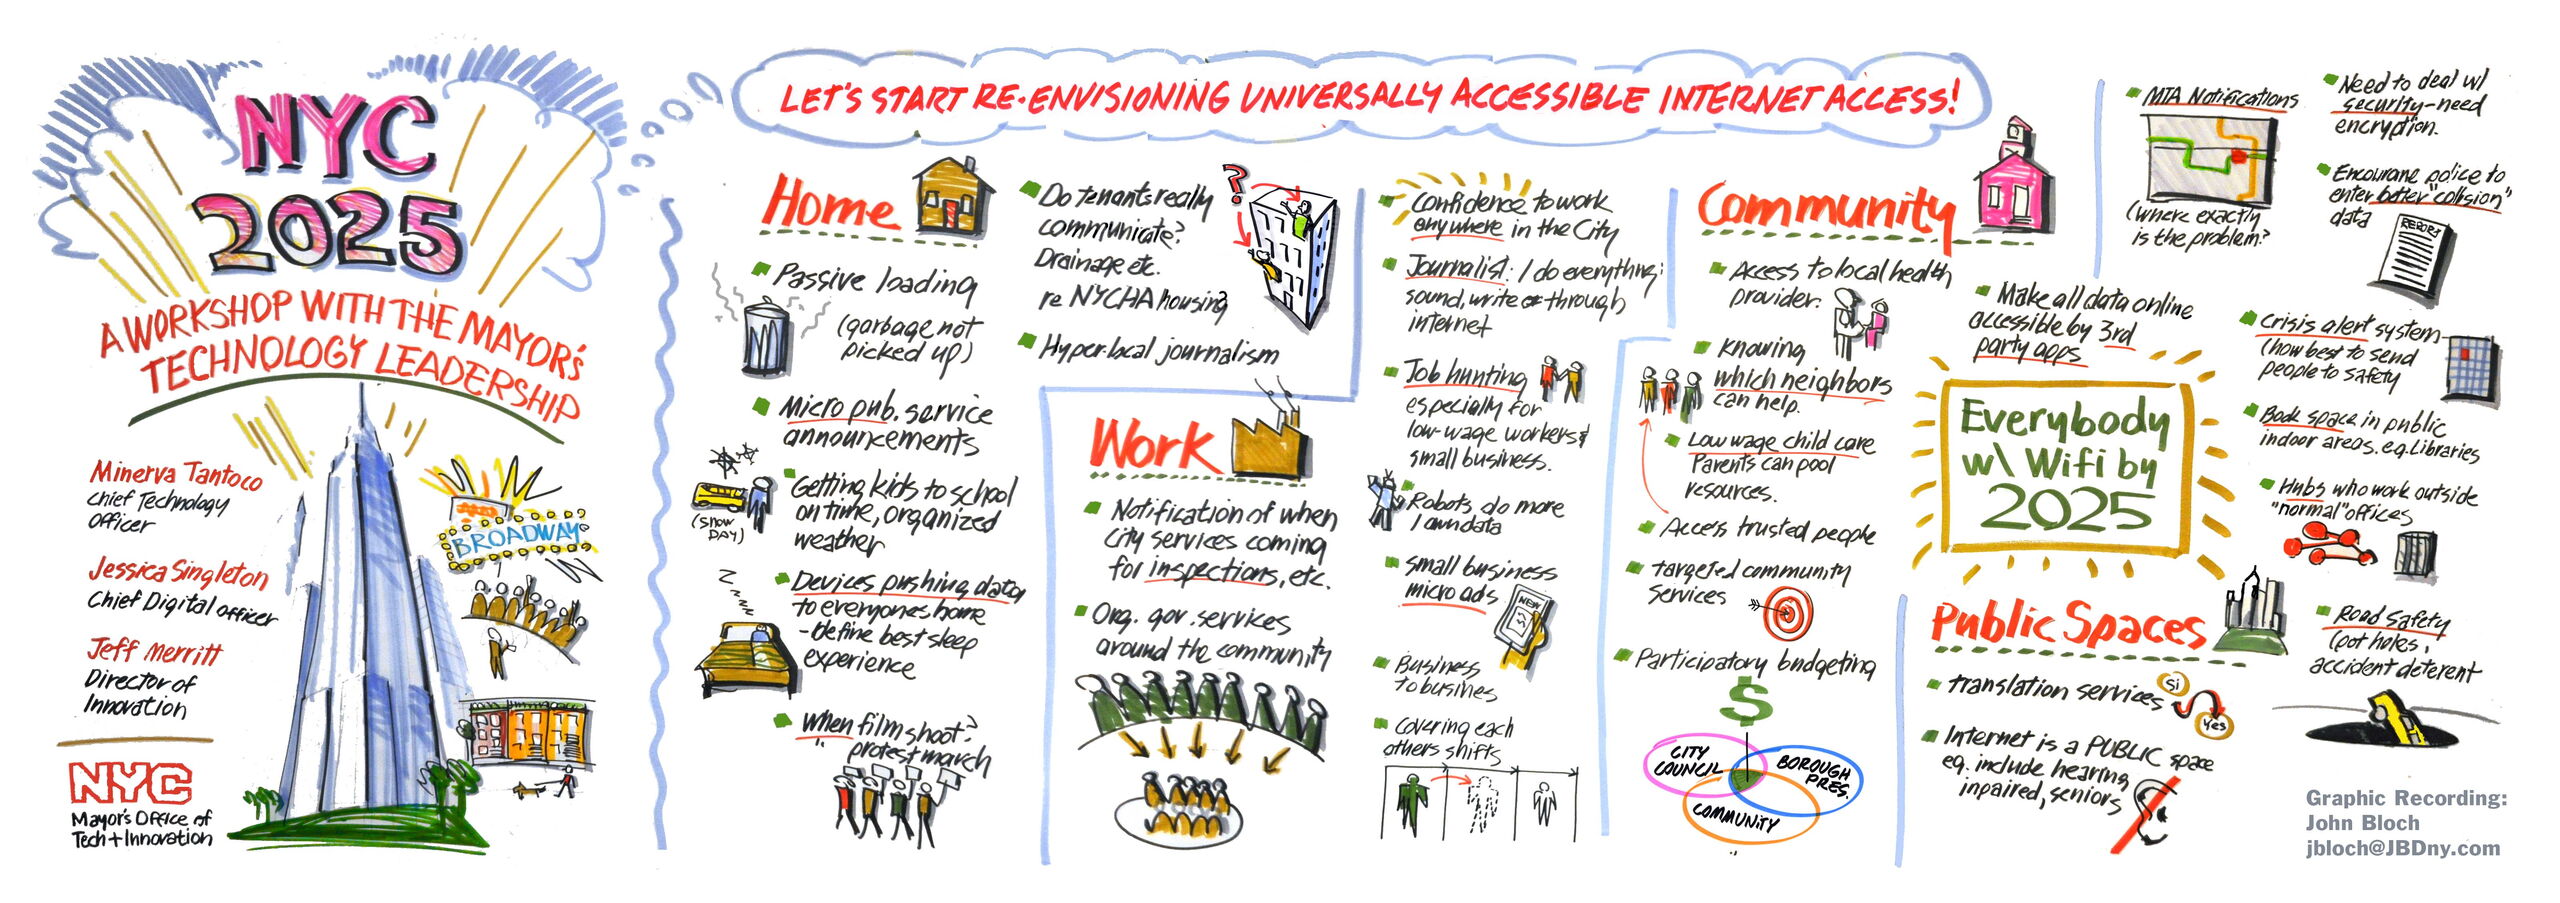 NYC
2025
A WORKSHOP WITH THE MAYOR'S
TECHNOLOGY LEADERSHIP
Minerva Tantoco
Chief Technology
Officer
Jessica Singleton
Chief Digital officer
Jeff Merritt
Director of
Innovation
NYC
Mayor's Office of
Tech + Innovation
BROADWAY
LET'S START RE-ENVISIONING UNIVERSALLY ACCESSIBLE INTERNET ACCESS!
Home
Passive loading
(garbage not
picked up)
Micro pub. service
announcements
Getting kids to school
on time, organized
weather
(SNOW
DAY)
Devices pushing data
to everyones home
- define best sleep
experience
Z
When film shoot?
" protest march
Do tenants really
communicate?
Drainage etc.
re NYCHA housing
?
Hyper-local journalism
Work
Notification of when
city services coming
for inspections, etc.
Org. gov. services
around the community
Confidence to work
anywhere in the City
Journalist: I do everything:
sound, write through
internet
Job hunting
especially for
low-wage workers &
small business.
Robots do more
I own data
Small business
micro ads
NEW
Business
to busines
Covering each
others shifts
Community
Access to local health
provider.
Knowing
which neighbors
can help.
Low wage child care
Parents can pool
resources.
Access trusted people
targeted community
Services
Participatory budgeting
$
CITY
COUNCIL
BOROUGH
PRES.
COMMUNITY
MTA Notifications
(where exactly
is the problem?
Need to deal w/
security-need
encryption.
Encourane police to
enter better "collision"
data
REPORT
Make all data online
accessible by 3rd
party apps
Everybody
w\ Wifi by
2025
Crisis alert system
(how best to send
people to safety
Book space in public
indoor areas. eg. Libraries
Hubs who work outside
"normal" offices
Public Spaces
translation services
Si
Yes
Internet is a PUBLIC space
eg. include hearing
inpaired, seniors
Road Safety
(pot holes,
accident deterent
Graphic Recording:
John Bloch
jbloch@JBDny.com